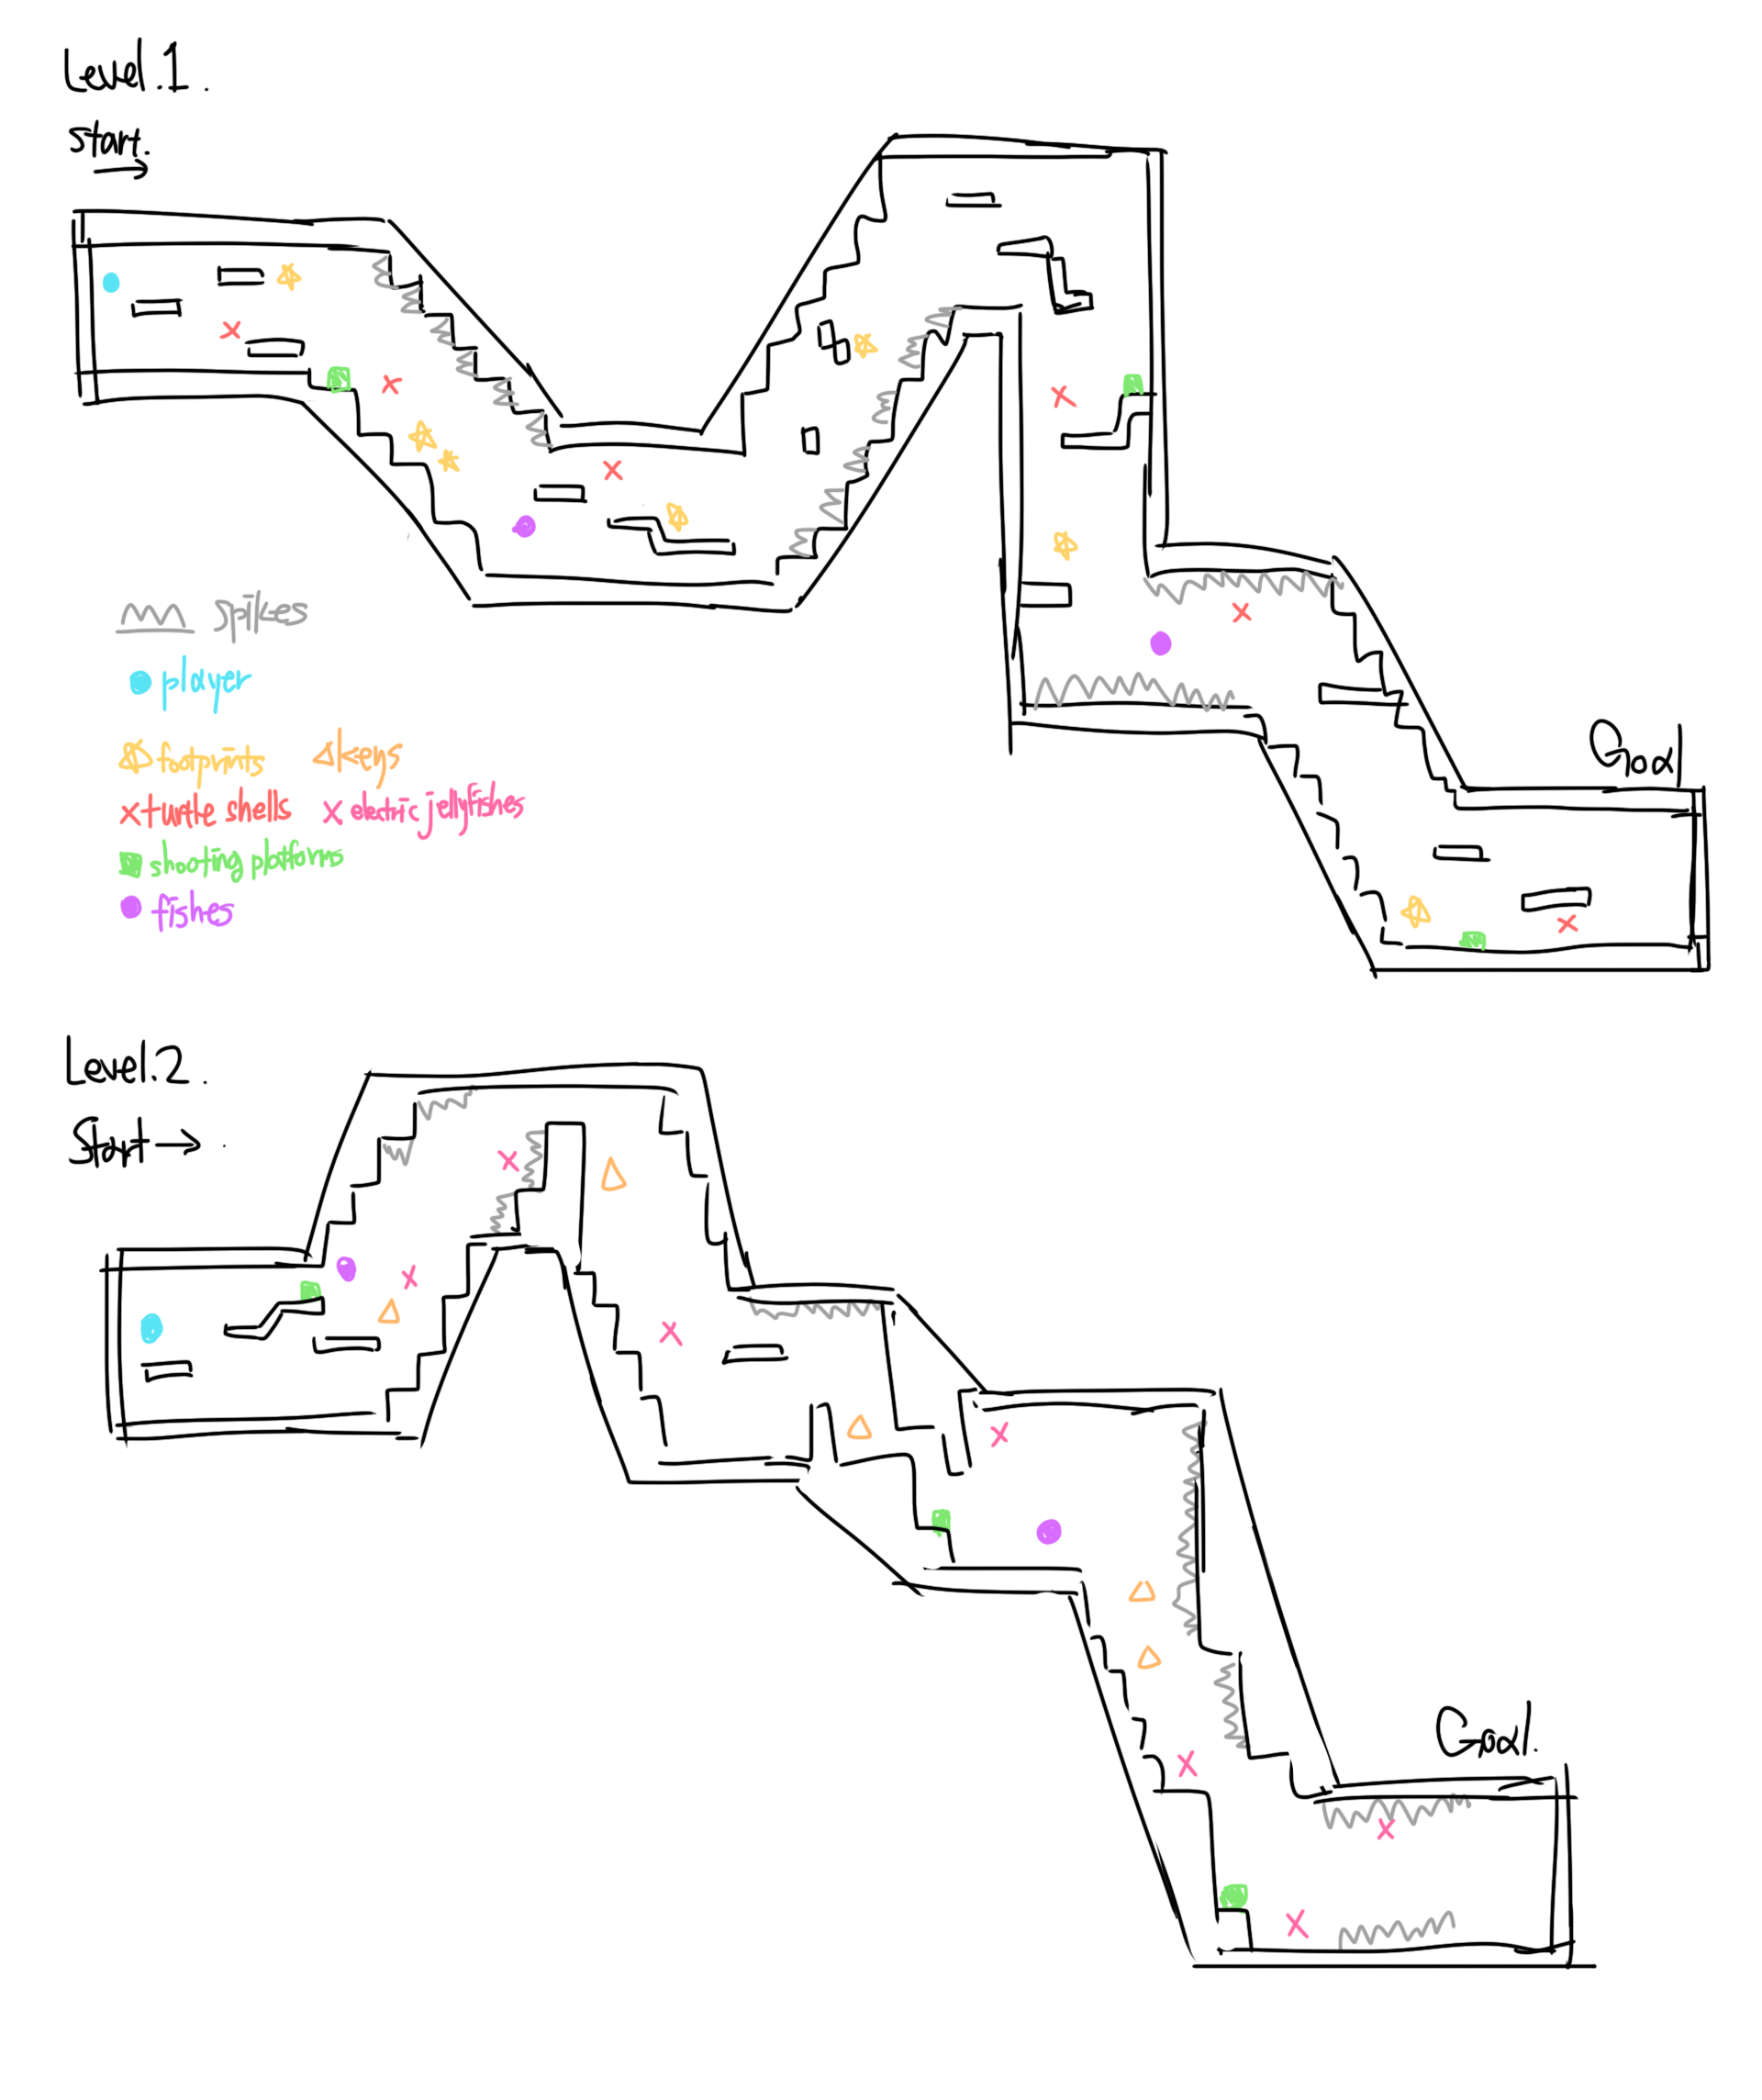 Level.1.
start.
Spikes
player
footprints
keys
turtle shells
electric jellyfishes
shooting platforms
fishes
Goal
Level.2.
Start
Goal.